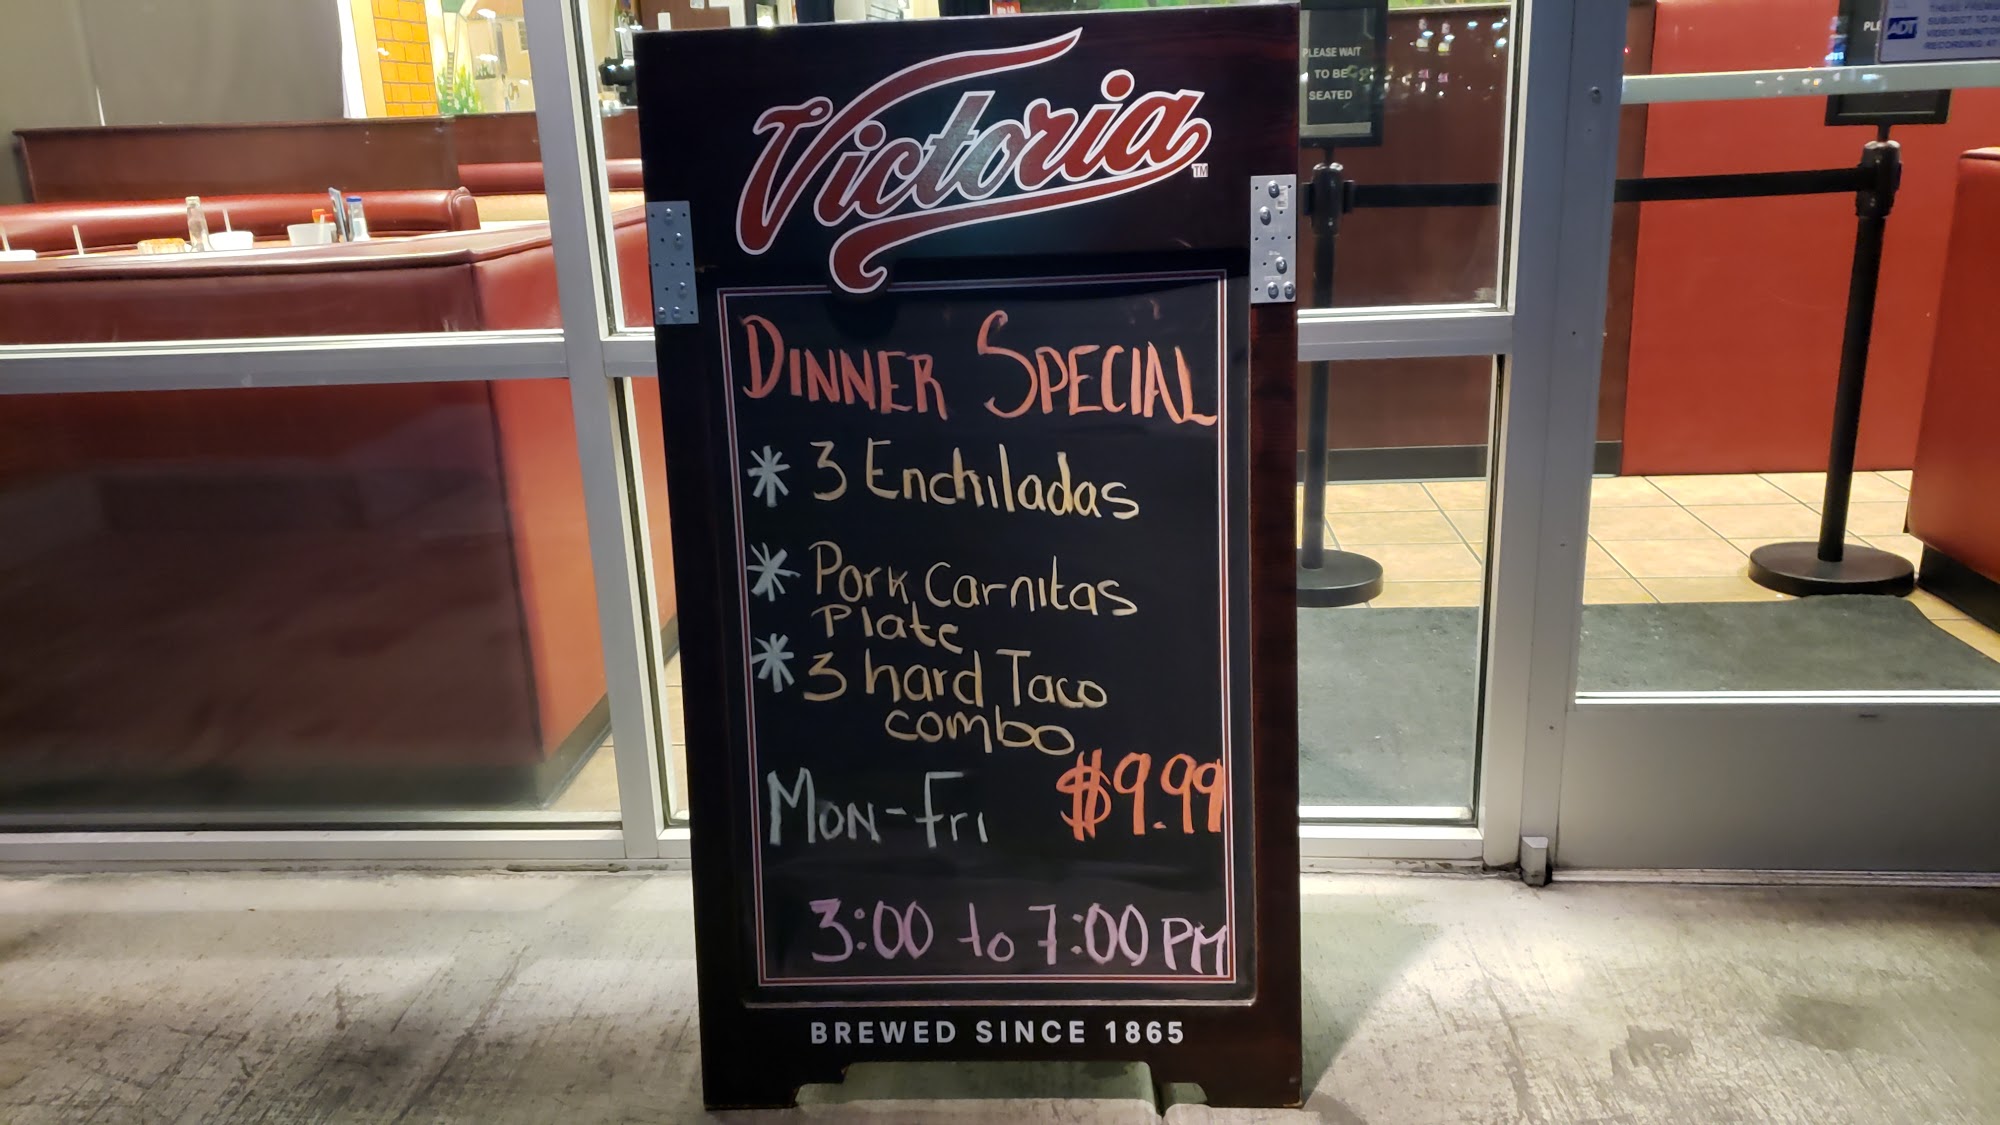 Victoria
TM
DINNER SPECIAL
* 3 Enchiladas
* Pork Carnitas
Plate
* 3 hard Taco
combo
MON-Fri $9.99
3:00 to 7:00 PM
BREWED SINCE 1865
PLEASE WAIT
TO BE
SEATED
ADT
SUBJECT TO
VIDEO
RECORDING